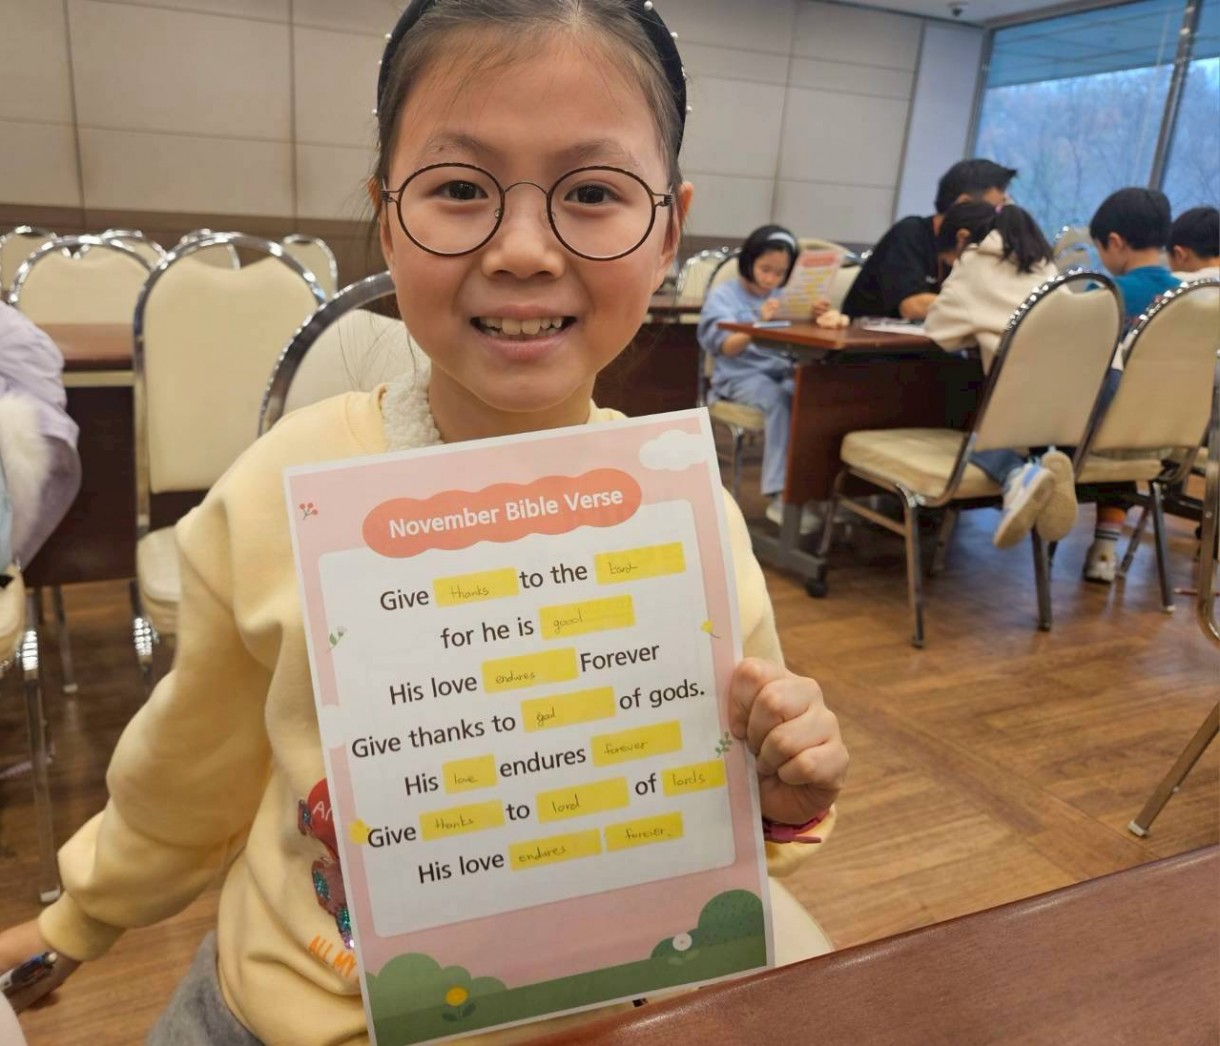 November Bible Verse
Give thanks to the Lord
for he is good
His love endures Forever
Give thanks to god of gods.
His love endures forever
Give thanks to lord of lords
His love endures forever.
ALL MY